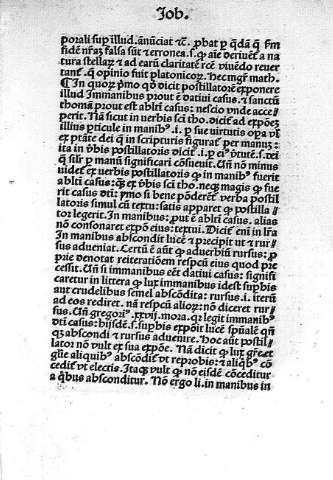 Job.
porali sup illud. ānūciat ⁊c̄. ꝓbat p q̄dā q̄
fidē nr̄az falsa sūt ⁊ erronea. s. ꝙ aīe deriuēt a na
tura stellaꝝ ⁊ ad earū claritatē rec̄e viuēdo reuer
tant. q̄ opinio fuit platonicoꝝ. Hec mgr̄ math.
¶ In quoꝝ pmo qꝺ dicit postillatorē exponere
illud Immanibus prout ē datiui casus: ⁊ sanctū
thomā prout est abltī casus: nescio vnde acce
perit. Nā sicut in verbis sc̄i tho. dicit̄ ad expōeꝫ
illius pticule in manibꝰ. i. p sue virtutis opa vł
ex ptāte dei q̄ in scripturis figurat̄ per manuꝫ:
ita in ꝟbis postillatoris dicit̄ .i. p ei
q̄ silr̄ p manū significari cōsueuit. Uñ nō minus
uidet ex verbis postillatoris ꝙ in manibꝰ fuerit
abltī casus: q̄ꝫ ex ꝟbis sc̄i tho. neqꝫ magis ꝙ fue
rit casus dtī: ymo si bene pōderēt verba postil
latoris simul cū textu: satis apparet ꝙ postilla
tor legerit. In manibus: put ē abltī casus. alias
nō consonaret expō eius: textui. Dicit̄ em̄ in lr̄a
In manibus abscondit lucē ⁊ precipit ut ⁊ rur
sus adueniat. Certū ē aūt ꝙ aduerbiū rursus: p
prie denotat reiteratōem respcū eius quod pre
cessit. Uñ si immanibus eēt datiui casus: signifi
caretur in littera ꝙ lux immanibus idest supbis
aut crudelibus semel abscōdita: rursus. i. iterū
ad eos rediret. nā respcū alioꝝ: nō diceret rur
sus. Uñ gregoriꝰ. xxvij. mora. qꝫ legit immanibꝰ
dtī casus: hijsdē. s. supbis expōit lucē spūalē qn̄
qꝫ abscondi ⁊ rursus aduenire. Hoc aūt postil
lator nō vult ex sua expōe. Nā dicit ꝙ lux gr̄e
gr̄ue aliquibꝰ abscōdit̄ vt reprobis: ⁊ aliqbꝰ cō
cedit̄ vt electis. Itaqꝫ vult ꝙ nō eisdē cōceditur
a qbus absconditur. Nō ergo li. in manibus in